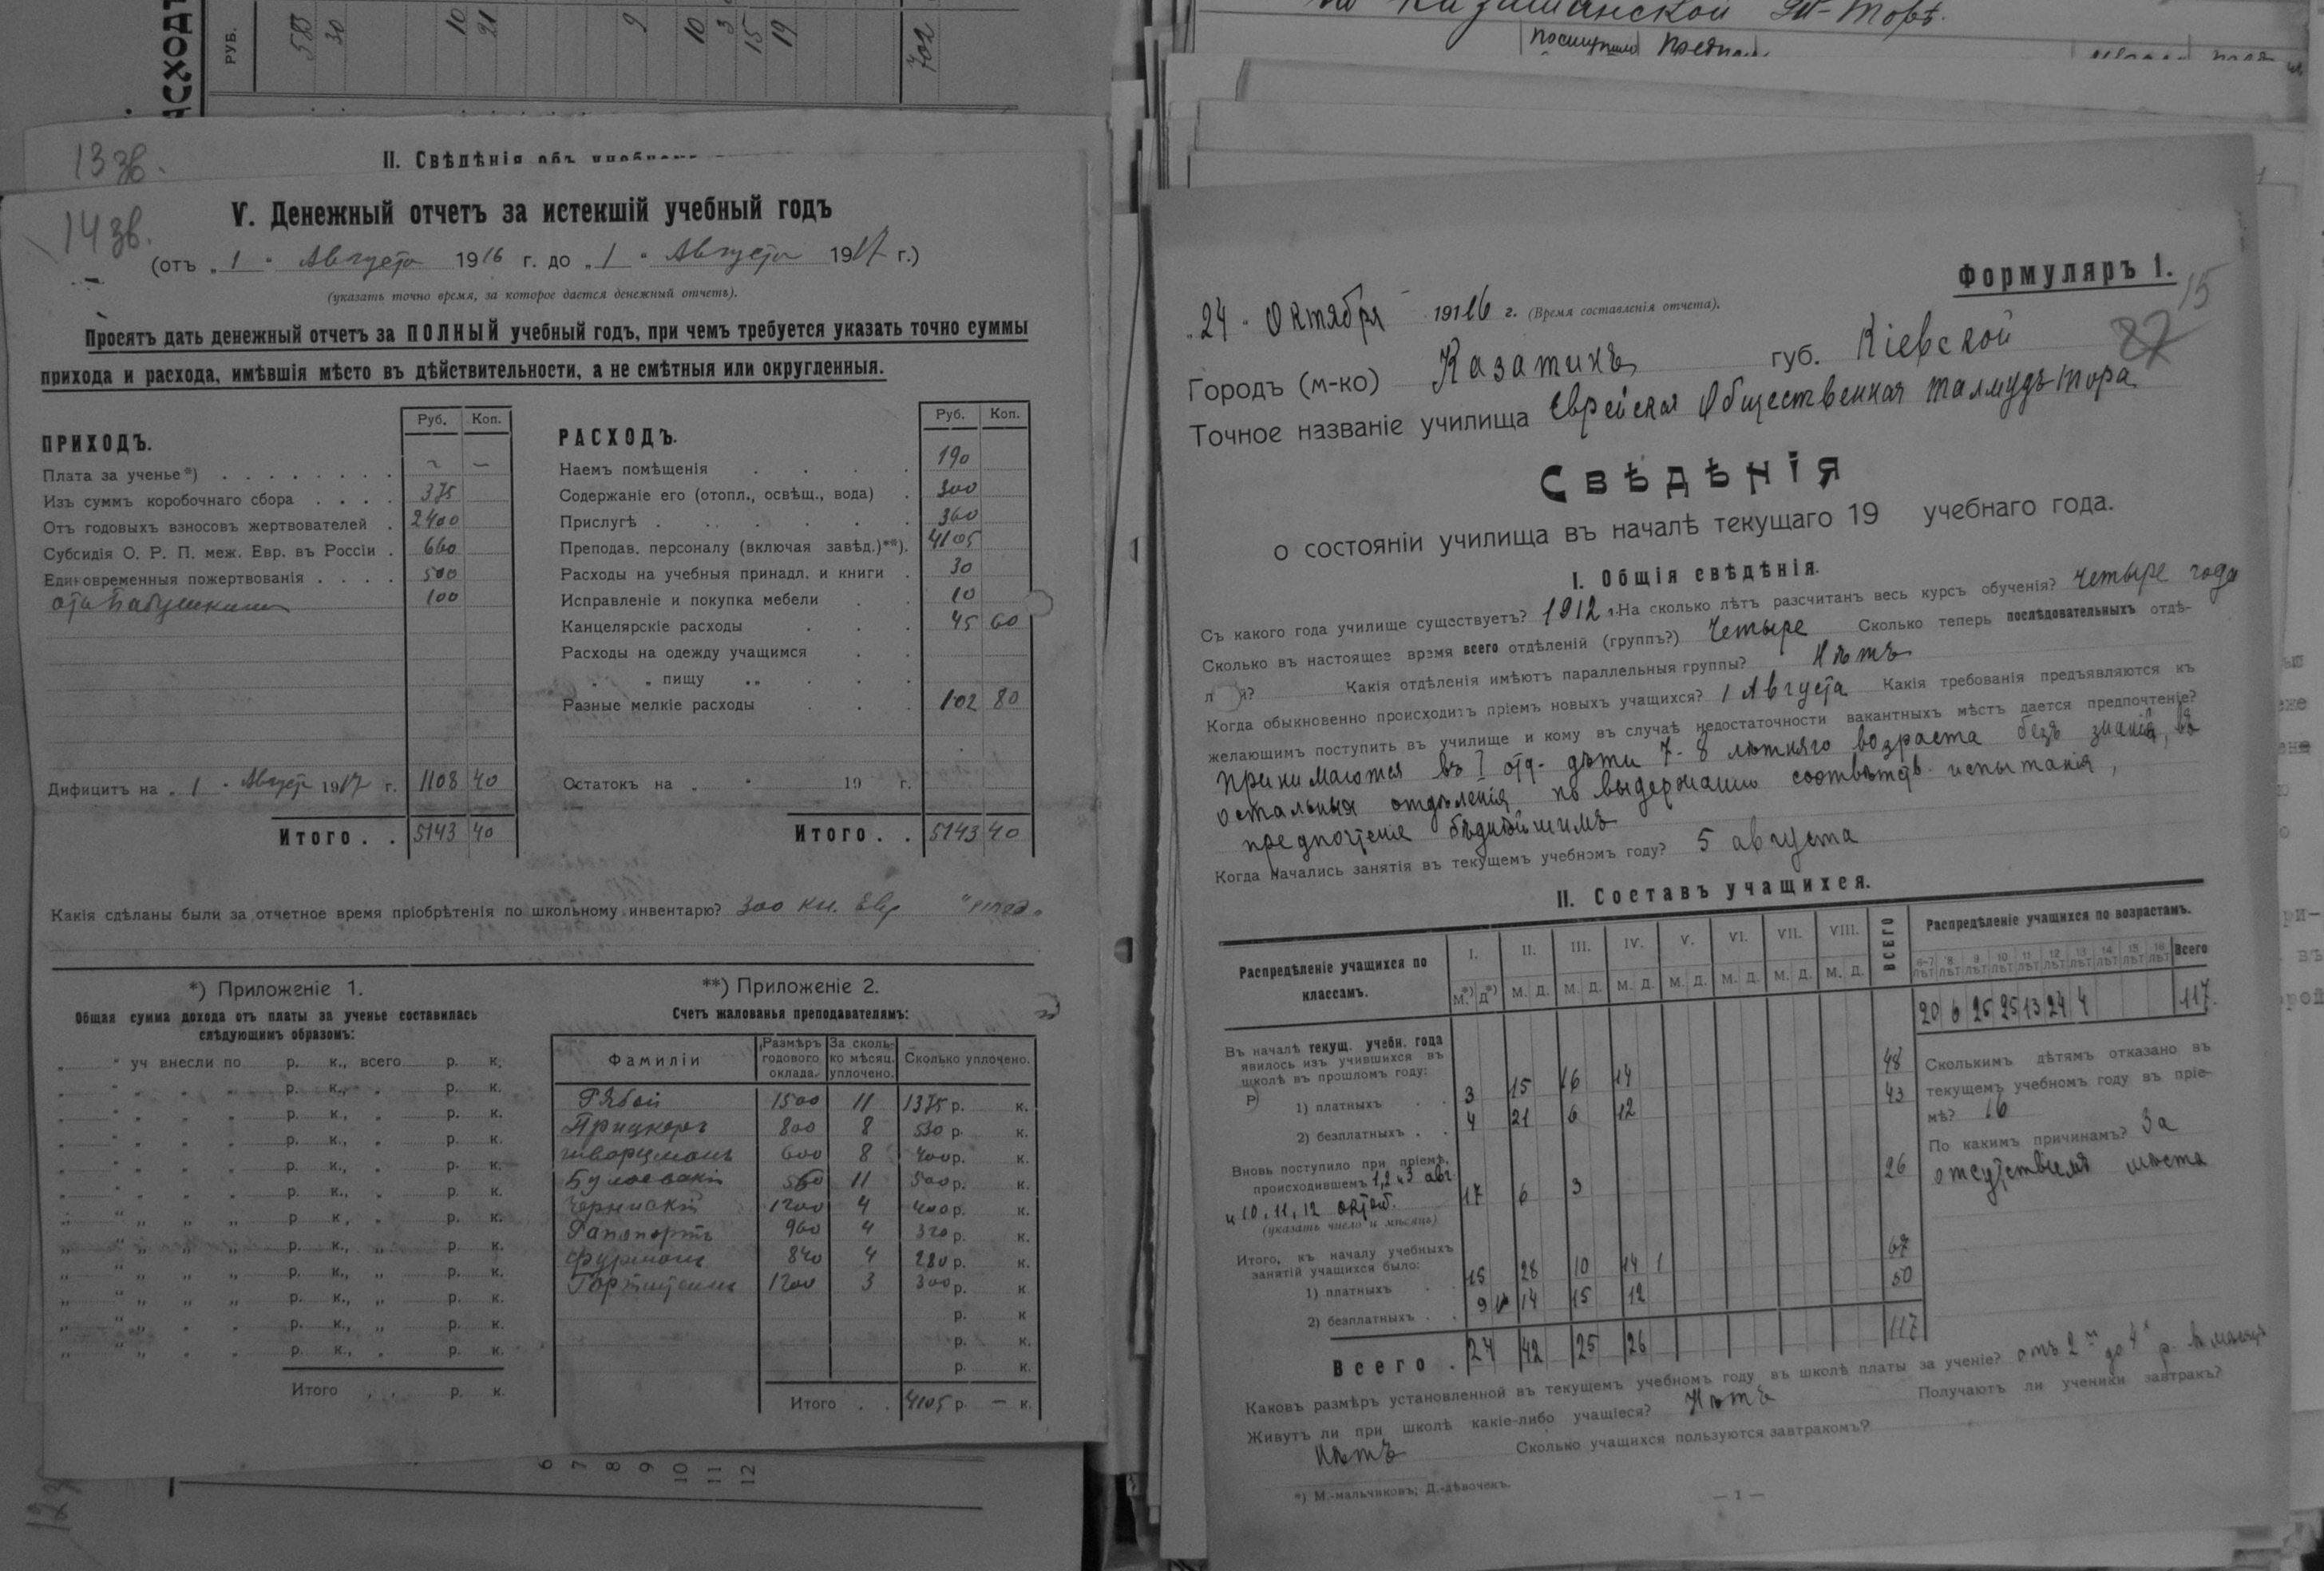 РУБ.
588
30
10
21
9
10
3
15
19
702
13 зв.
II. Свѣдѣнія объ
14 зв.
V. Денежный отчетъ за истекшій учебный годъ
(отъ „ 1 “ Августа 1916 г. до „ 1 “ Августа 1917 г.)
(указать точно время, за которое дается денежный отчетъ).
Просятъ дать денежный отчетъ за ПОЛНЫЙ учебный годъ, при чемъ требуется указать точно суммы
прихода и расхода, имѣвшія мѣсто въ дѣйствительности, а не смѣтныя или округленныя.
ПРИХОДЪ. Руб. Коп.
Плата за ученье*) — —
Изъ суммъ коробочнаго сбора 375
Отъ годовыхъ взносовъ жертвователей 2400
Субсидія О. Р. П. меж. Евр. въ Россіи 660
Единовременныя пожертвованія 500
100
Дифицитъ на „ 1 “ Август 1917 г. 1108 40
Итого . . 5143 40
РАСХОДЪ. Руб. Коп.
Наемъ помѣщенія 190
Содержаніе его (отопл., освѣщ., вода) 300
Прислугѣ 360
Преподав. персоналу (включая завѣд.)**). 4105
Расходы на учебныя принадл. и книги 30
Исправленіе и покупка мебели 10
Канцелярскіе расходы 45 60
Расходы на одежду учащимся
„ „ пищу „
Разные мелкіе расходы 102 80
Остатокъ на „ “ 19 г.
Итого . . 5143 40
Какія сдѣланы были за отчетное время пріобрѣтенія по школьному инвентарю? 300 кн.
*) Приложеніе 1.
Общая сумма дохода отъ платы за ученье составилась
слѣдующимъ образомъ:
„ “ уч внесли по р. к., всего р. к.
Итого р. к.
**) Приложеніе 2.
Счетъ жалованья преподавателямъ:
Фамиліи Размѣръ годового оклада. За сколько мѣсяц. уплочено. Сколько уплочено.
Рябой 1500 11 1375 р. к.
Прицкеръ 800 8 530 р. к.
Шварцманъ 600 8 400 р. к.
11 500 р. к.
Чернискій 1200 4 400 р. к.
Рапопортъ 960 4 320 р. к.
Фурманъ 840 4 280 р. к.
1200 3 300 р. к
Итого . . 4105 р. — к.
6
7
8
9
10
11
12
Формуляръ 1.
15
„ 24 “ Октября 1916 г. (Время составленія отчета).
Городъ (м-ко) Казатинъ губ. Кіевской
Точное названіе училища Еврейская Общественная Талмудъ Тора
Свѣдѣнія
о состояніи училища въ началѣ текущаго 19 учебнаго года.
I. Общія свѣдѣнія.
Съ какого года училище существуетъ? 1912 г. На сколько лѣтъ разсчитанъ весь курсъ обученія? Четыре года
Сколько въ настоящее время всего отдѣленій (группъ?) Четыре Сколько теперь послѣдовательныхъ отдѣ-
Какія отдѣленія имѣютъ параллельныя группы? Нѣтъ
Когда обыкновенно происходитъ пріемъ новыхъ учащихся? 1 Августа Какія требованія предъявляются къ
желающимъ поступить въ училище и кому въ случаѣ недостаточности вакантныхъ мѣстъ дается предпочтеніе?
Принимаются въ I отд. дѣти 7-8 лѣтняго возраста безъ знаній, въ
остальныя отдѣленія по выдержаніи соотвѣтств. испытанія,
предпочтеніе бѣднѣйшимъ
Когда начались занятія въ текущемъ учебномъ году? 5 августа
II. Составъ учащихся.
Распредѣленіе учащихся по классамъ. I. II. III. IV. V. VI. VII. VIII. ВСЕГО
М.*) Д*) М. Д. М. Д. М. Д. М. Д. М. Д. М. Д. М. Д.
Распредѣленіе учащихся по возрастамъ.
6-7 лѣт 8 лѣт 9 лѣт 10 лѣт 11 лѣт 12 лѣт 13 лѣт 14 лѣт 15 лѣт 16 лѣт Всего
20 6 25 25 13 24 4 117.
Въ началѣ текущ. учебн. года
явилось изъ учившихся въ
школѣ въ прошломъ году:
1) платныхъ 3 15 16 14 48
2) безплатныхъ 4 21 6 12 43
Вновь поступило при пріемѣ,
происходившемъ 1, 2 и 3 авг.
и 10, 11, 12 октяб. 17 6 3 26
(указать число и мѣсяцъ)
Итого, къ началу учебныхъ
занятій учащихся было:
1) платныхъ 15 28 10 14 67
2) безплатныхъ 9 14 15 12 50
Всего 24 42 25 26 117
Сколькимъ дѣтямъ отказано въ
текущемъ учебномъ году въ пріе-
мѣ? 16
По какимъ причинамъ? За
отсутствіемъ мѣста
Каковъ размѣръ установленной въ текущемъ учебномъ году въ школѣ платы за ученіе? отъ 2 до 4 р. въ мѣсяцъ
Живутъ ли при школѣ какіе-либо учащіеся? Нѣтъ Получаютъ ли ученики завтракъ?
Нѣтъ Сколько учащихся пользуются завтракомъ?
*) М.-мальчиковъ; Д.-дѣвочекъ.
— 1 —